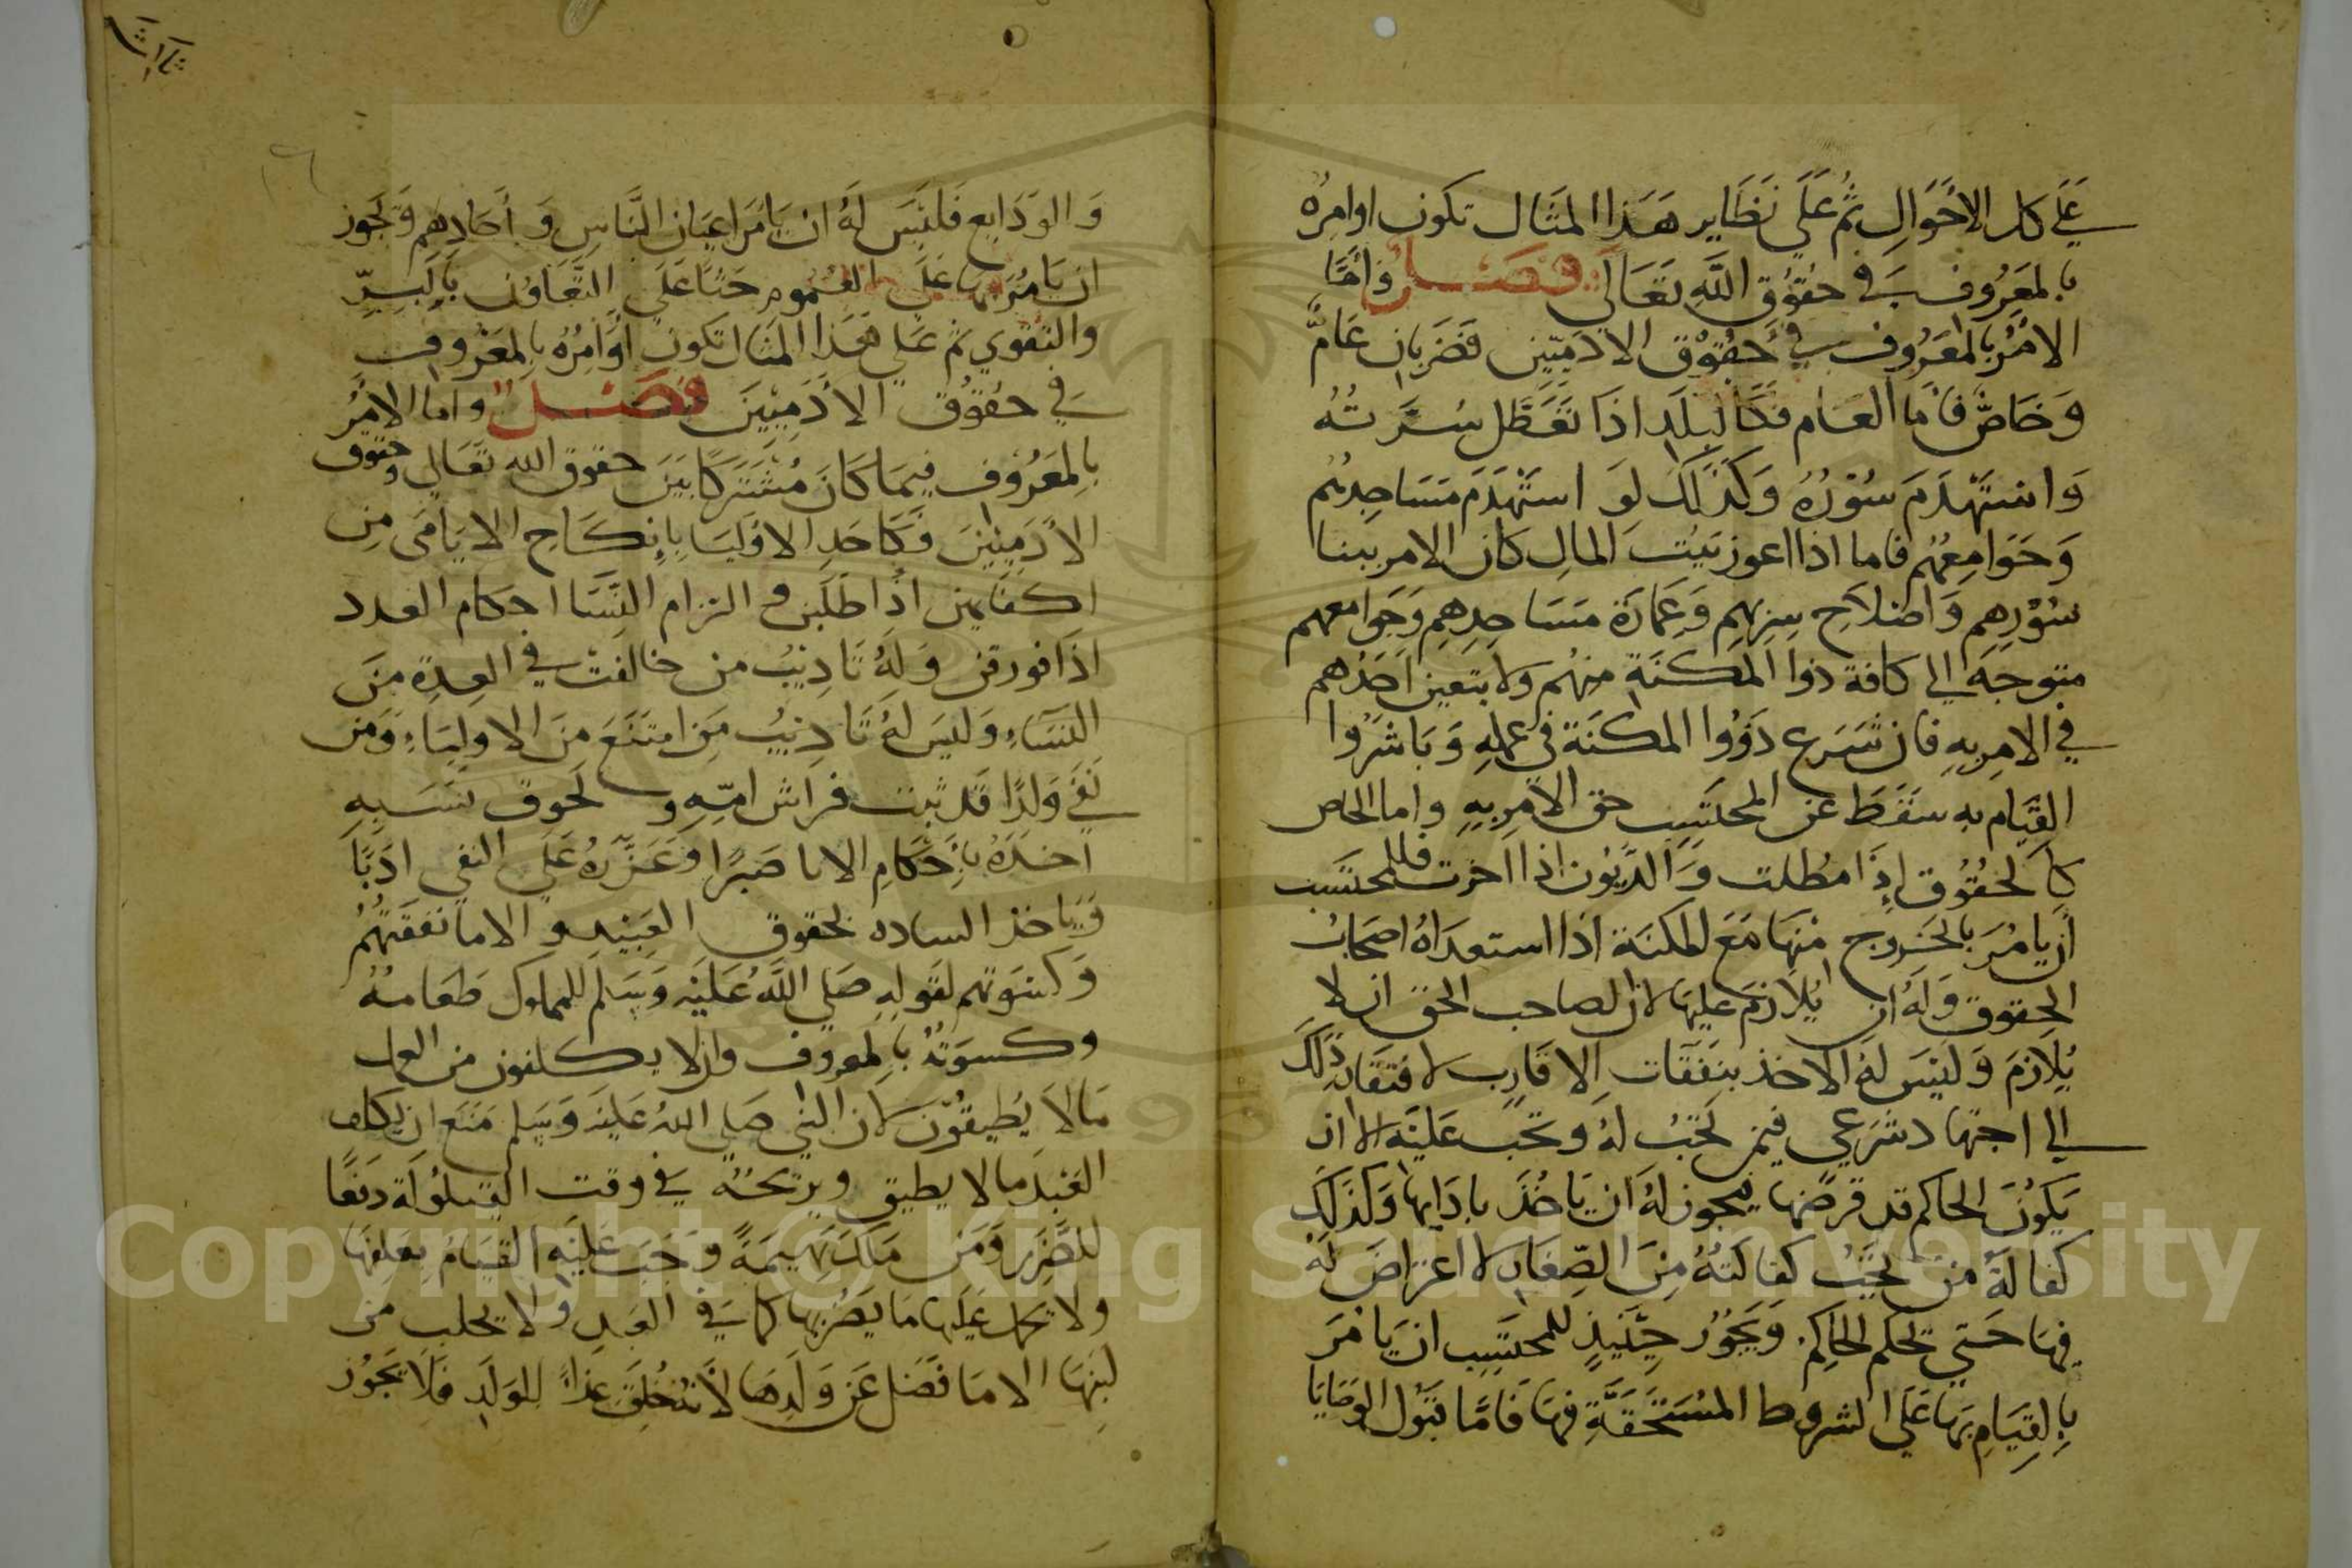 علي كل الأحوال ثم علي نظاير هذا المثال تكون اوامره
بالمعروف في حقوق الله تعالي فصل واما
الامر بالمعروف في حقوق الادميين فضربان عام
وخاص فأما العام فكالبلد اذا تعطل شربه
واستهدم سوره وكذلك لو استهدم مساجدهم
وجوامعهم فاما اذا اعوز بيت المال كان الامر ببنا
سورهم واصلاح شربهم وعمارة مساجدهم وجوامعهم
متوجه الي كافة ذوا المكنة منهم ولا يتعين احدهم
في الامر به فان شرع ذووا المكنة في عمله وباشروا
القيام به سقط عن المحتسب حق الامر به واما الخاص
كالحقوق إذا مطلت والديون اذا اخرت فللمحتسب
أن يامر بالخروج منها مع المكنة اذا استعداه اصحاب
الحقوق وله ان يلازم عليها لان لصاحب الحق ان لا
يلازم وليس له الاخذ بنفقات الاقارب لافتقار ذلك
الي اجتهاد شرعي فيمن تجب له وتجب عليه الا ان
يكون الحاكم قد فرضها فيجوز له ان ياخذ بادايها وكذلك
كفالة من تجب كفالته من الصغار لا اعتراض له
فيها حتي يحكم الحاكم ويجوز حينيذ للمحتسب ان يامر
بالقيام بها علي الشروط المستحقة فيها فاما قبول الوصايا
والودايع فليس له ان يامر اعيان الناس وأحادهم ويجوز
ان يامر بها علي العموم حثا علي التعاون بالبر
والتقوي ثم علي هذا المثال تكون أوامره بالمعروف
في حقوق الادميين فصل واما الامر
بالمعروف فيما كان مشتركا بين حقوق الله تعالي وحقوق
الادميين فكاخد الاوليا بإنكاح الايامى من
اكفايهن اذا طلبن والتزام النسا احكام العدد
اذا فورقن وله تاديب من خالفت في العدة من
النساء وليس له تاديب من امتنع من الاولياء ومن
نفي ولدا قد ثبت فراش امه ولحوق نسبه
اخده بأحكام الابا صبرا وعزره علي النفي ادبا
وياخذ الساده بحقوق العبيد والاما نفقتهم
وكسوتهم لقوله صلي الله عليه وسلم للمملوك طعامه
وكسوته بالمعروف وان لا يكلفون من العمل
مالا يطيقون لان النبي صلي الله عليه وسلم منع ان يكلف
العبد مالا يطيق ويريحه في وقت القيلولة دفعا
للضرر ومن ملك بهيمة وجب عليه القيام بعلفها
ولا يحمل عليها ما يضر بها كما في العبد ولا يحلب من
لبنها الا ما فضل عن ولدها لأنه خلق غذاء للولد فلا يجوز